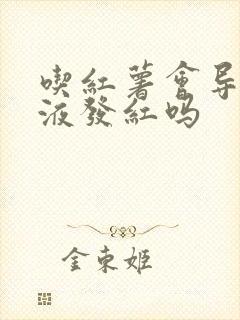 喫紅薯會导
液發紅吗
金東姬